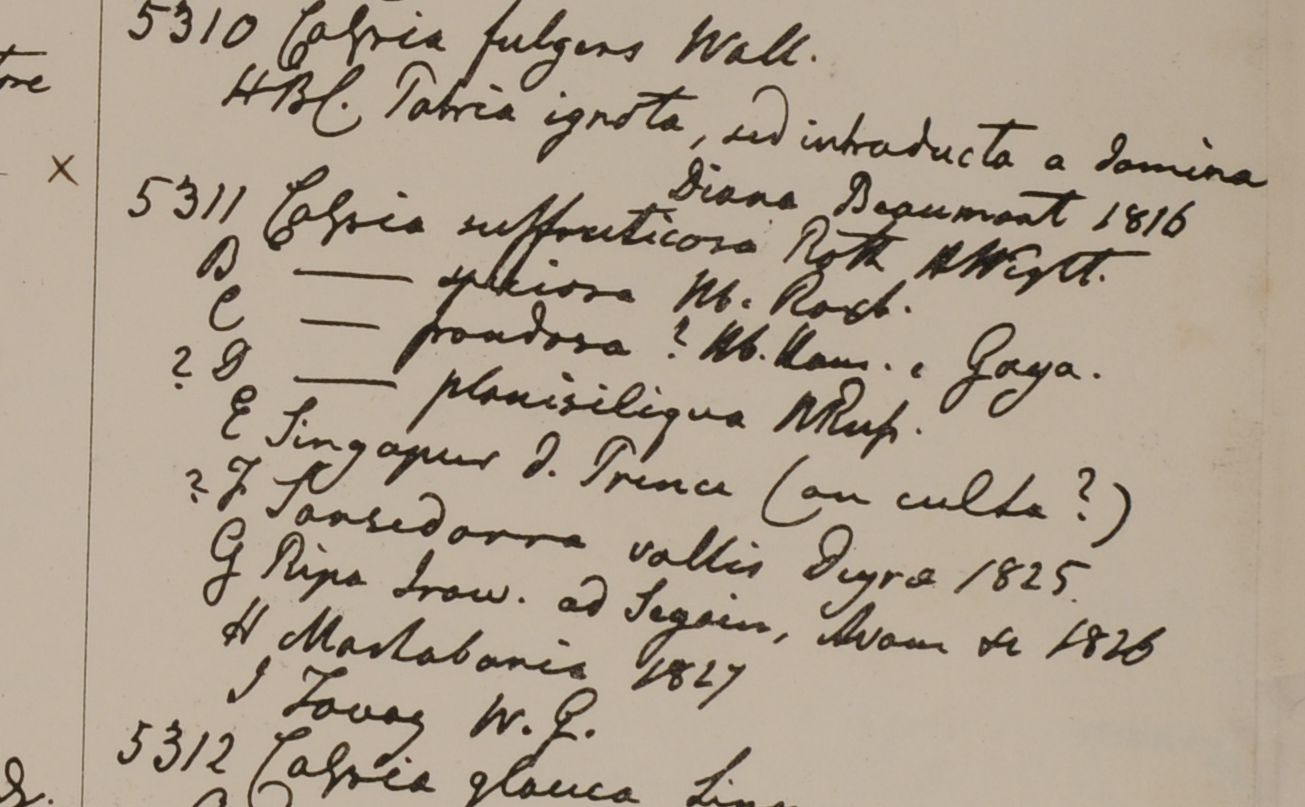 5310 Cassia fulgens Wall.
HBC. Patria ignota, sed introducta a domina
Diana Beaumont 1816
× 5311 Cassia suffruticosa Roth HWight.
B —— speciosa Hb. Roxb.
C —— frondosa ? Hb. Ham. e Goya.
? D —— planisiliqua HRup.
E Singapur d. Prince (an culta ?)
? F vallis Deyræ 1825
G Ripa Iraw. ad Segain, Avam &c 1826
H Martabania 1827
I Tavoy W. G.
5312 Cassia glauca